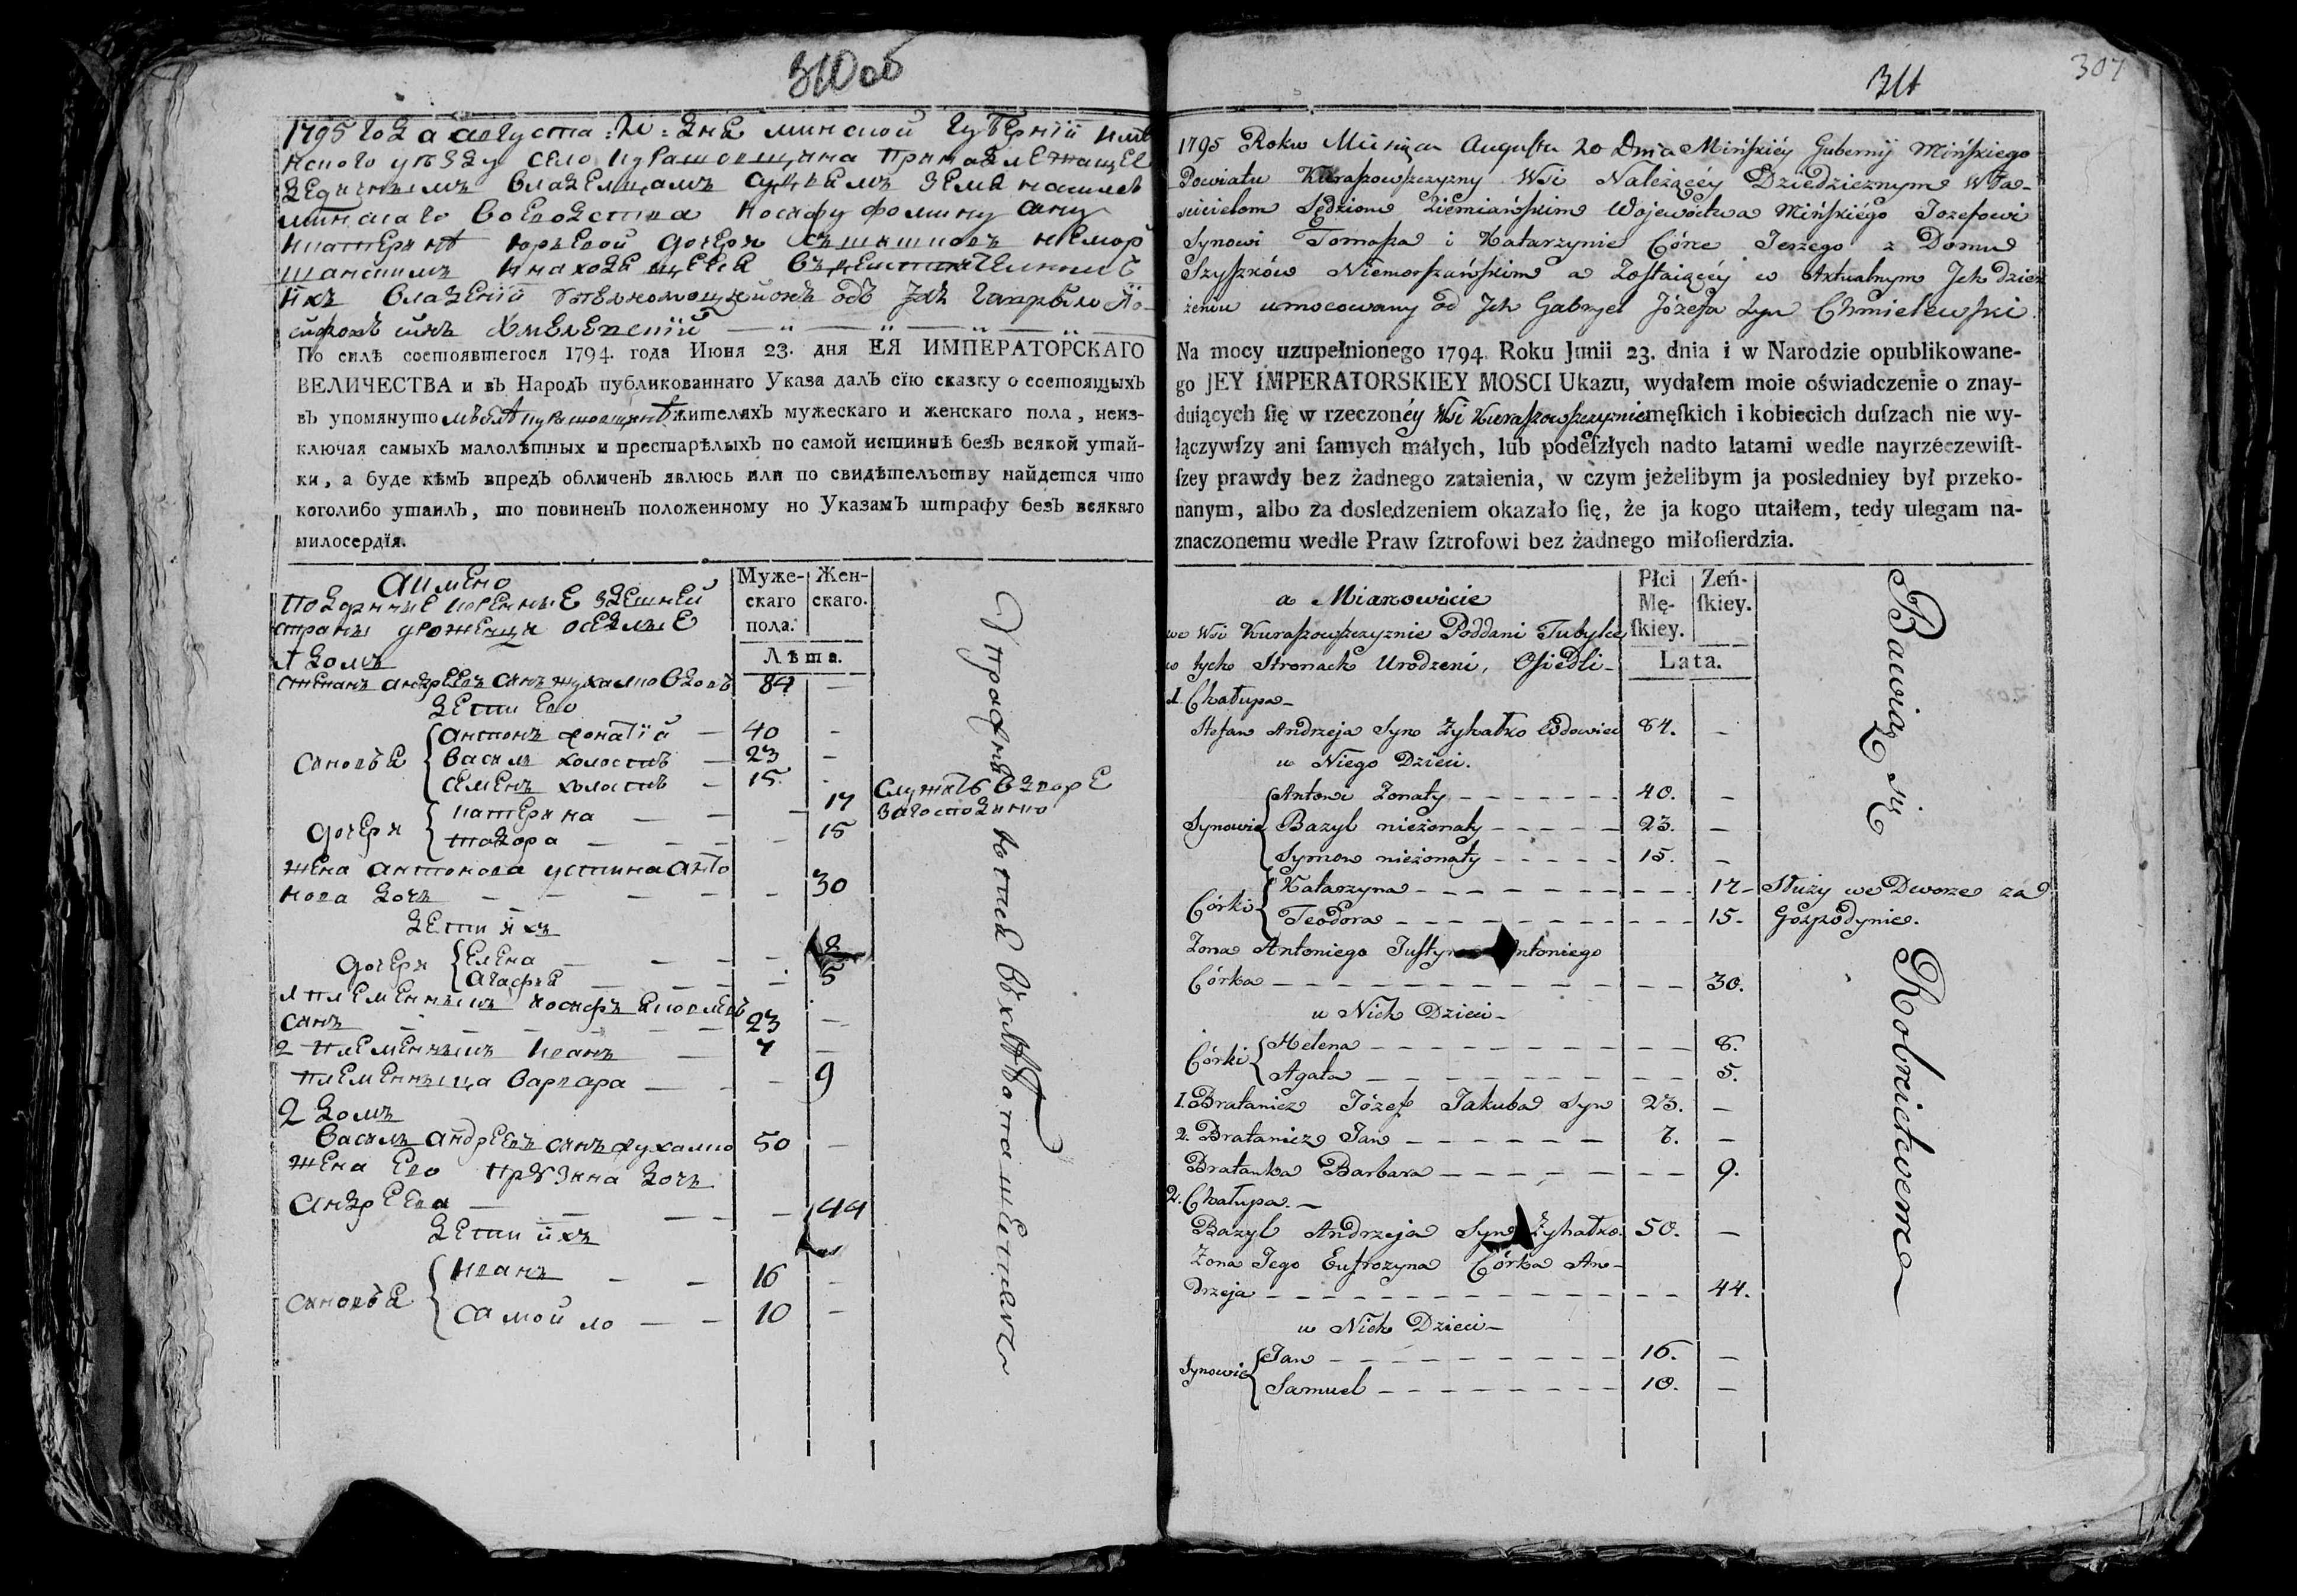 310 об
1795 года августа 20 дня минской губернїи
уѣзду село Курашовщина принадлежащее
владельцамъ
минскаго воеводства Иосифу Фомину сыну
Катерине Юрьевой дочери
владенїи одъ Габрыель
Хмелевскїй
По силѣ состоявшегося 1794. года Июня 23. дня ЕЯ ИМПЕРАТОРСКАГО
ВЕЛИЧЕСТВА и въ Народъ публикованнаго Указа далъ сїю сказку о состоящыхъ
въ упомянуто жителяхъ мужескаго и женскаго пола, неиз-
ключая самыхъ малолѣтныхъ и престарѣлыхъ по самой истиннѣ безъ всякой утай-
ки, а буде кѣмъ впредъ обличенъ явлюсь или по свидѣтельству найдется что
коголибо утаилъ, то повиненъ положенному по Указамъ штрафу безъ всякаго
милосердїя.
Муже-
скаго
пола.
Жен-
скаго.
Лѣта.
а имено
подданные здешней
страны уроженци оселые
1 домъ
Степанъ Андреевъ сынъ Жухалко вдовъ 84 —
дети ево
сыновья
Антонъ женатїй — 40 —
Василь холостъ — 23 —
Семенъ холостъ — 15 -
дочери
Катерина — — — 17 Служитъ в дворе
Тодора — — — 15 за господиню
жена Антонова Устина Анто
нова дочь — — — — 30
дети ихъ
дочери
Елена — — — 8
Агафья — — — 5
1 племенникъ Иосифъ Яковлевъ
сынъ — — — 23 —
2 племенникъ Иванъ — 7 —
племенница Варвара — — 9
2 домъ
Василь Андреевъ сынъ Жухалко 50 —
жена ево дочь
Андреева — — — 44
дети ихъ
сыновья
Иванъ — — 16 —
Самойло — — 10 —
311
307
1795 Roku Miesiąca Augusta 20 Dnia Mińskiéy Gubernij Mińskiego
Powiatu Kuraszowszczyzny Wsi Należącéy Dziedzicznym Wła-
scicielom Sędziom Ziemiańskim Wojewóctwa Mińskiégo Jozefowi
Synowi Tomasza i Katarzynie Córce Jerzego z Domu
Szyszków Niemorszańskim a Zostaiącéy w Aktualnym Jch dzier
żeniu umocowany od Jch Gabryel Józefa Syn Chmielewski.
Na mocy uzupełnionego 1794. Roku Junii 23. dnia i w Narodzie opublikowane-
go JEY IMPERATORSKIEY MOSCI Ukazu, wydałem moie oświadczenie o znay-
duiących ſię w rzeczonéy Wsi Kuraszowszczyznie męſkich i kobiecich duſzach nie wy-
łączywſzy ani ſamych małych, lub podeſzłych nadto latami wedle nayrzéczewiſt-
ſzey prawdy bez żadnego zataienia, w czym jeżelibym ja posledniey był przeko-
nanym, albo za dosledzeniem okazało ſię, że ja kogo utaiłem, tedy ulegam na-
znaczonemu wedle Praw ſztrofowi bez żadnego miłoſierdzia.
Płci
Mę-
ſkiey.
Zeń-
ſkiey.
Lata.
a Mianowicie
we Wsi Kuraszowszczyznie Poddani Tubylcy
w tych Stronach Urodzeni, Osiedli-
1. Chałupa-
Stefan Andrzeja Syn Żyhałko Wdowiec 84. —
u Niego Dzieci.
Synowie
Antoni Zonaty - - - - 40. —
Bazyl nieżonaty - - - - 23. —
Symon nieżonaty - - - - 15. —
Córki
Katarzyna - - - - 17- Służy we Dworze za
Teodora - - - - 15- Gospodynie.
Zona Antoniego Justyna Antoniego
Córka - - - - 30.
u Nich Dzieci-
Córki
Helena - - - - 8.
Agata - - - - 5.
1. Bratanicz Józef Jakuba Syn 23. —
2. Bratanicz Jan - - - - 7. —
Bratanka Barbara - - - - 9.
2. Chałupa.-
Bazyl Andrzeja Syn Żyhałko. 50. —
Zona Jego Eufrozyna Córka An-
drzeja - - - - 44.
u Nich Dzieci-
Synowie
Jan - - - - 16. —
Samuel - - - - 10. —
Bawią się Rolnictwem